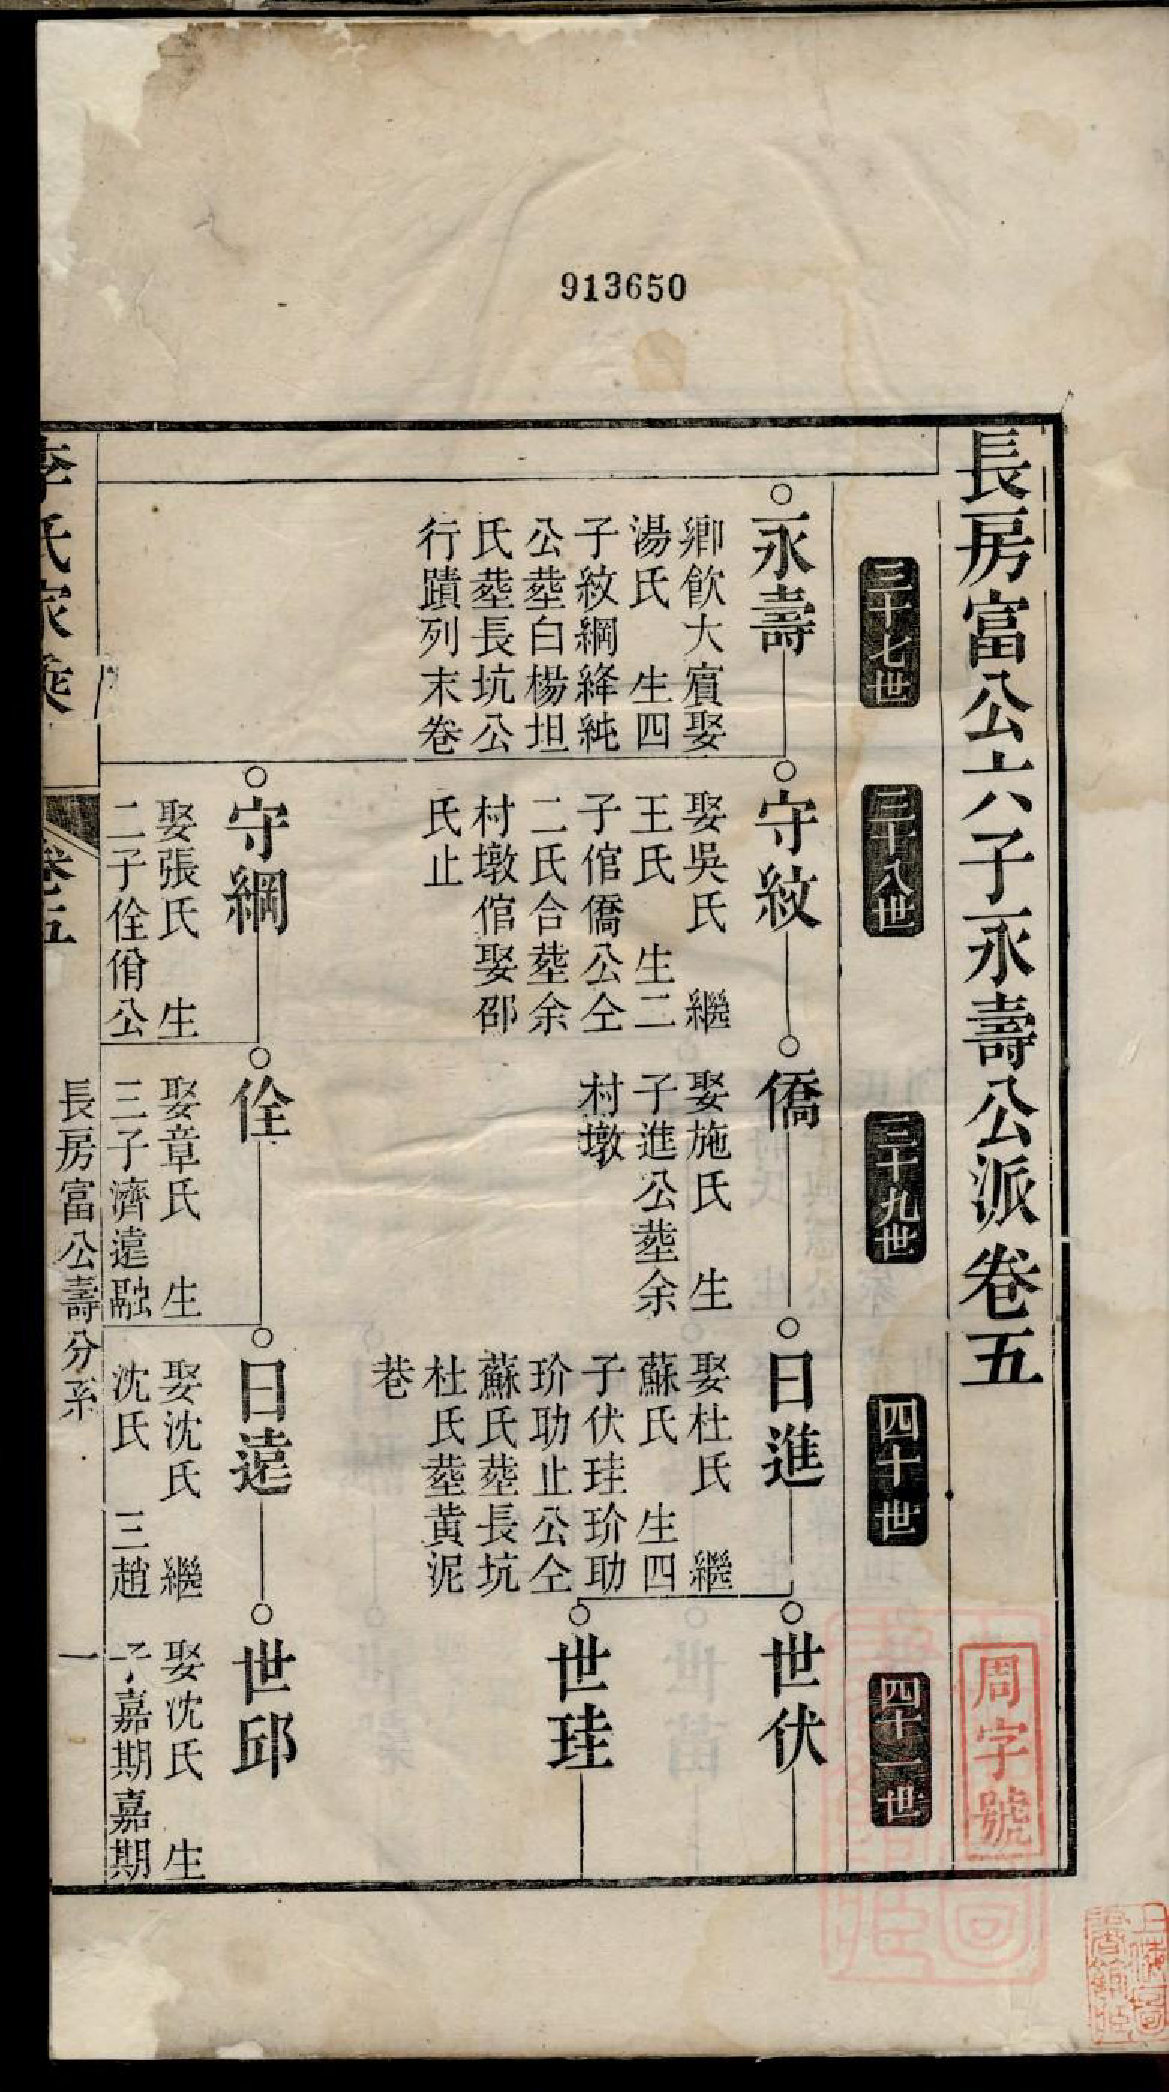 913650
長房富公六子永壽公派卷五
周字號
三十七世
三十八世
三十九世
四十世
四十一世
永壽
鄉飲大賓娶
湯氏 生四
子紋綱絳純
公塟白楊坦
氏塟長坑公
行蹟列末卷
守紋
娶吳氏 繼
王氏 生二
子倌僑公仝
二氏合塟余
村墩倌娶邵
氏止
僑
娶施氏 生
子進公塟余
村墩
日進
娶杜氏 繼
蘇氏 生四
子伏珪玠助
玠助止公仝
蘇氏塟長坑
杜氏塟黃泥
巷
世伏
世珪
守綱
娶張氏 生
二子佺佾公
佺
娶章氏 生
三子濟遠融
日遠
娶沈氏 繼
沈氏 三趙
世邱
娶沈氏 生
子嘉期嘉期
李氏家乘
卷五
長房富公壽分系
一